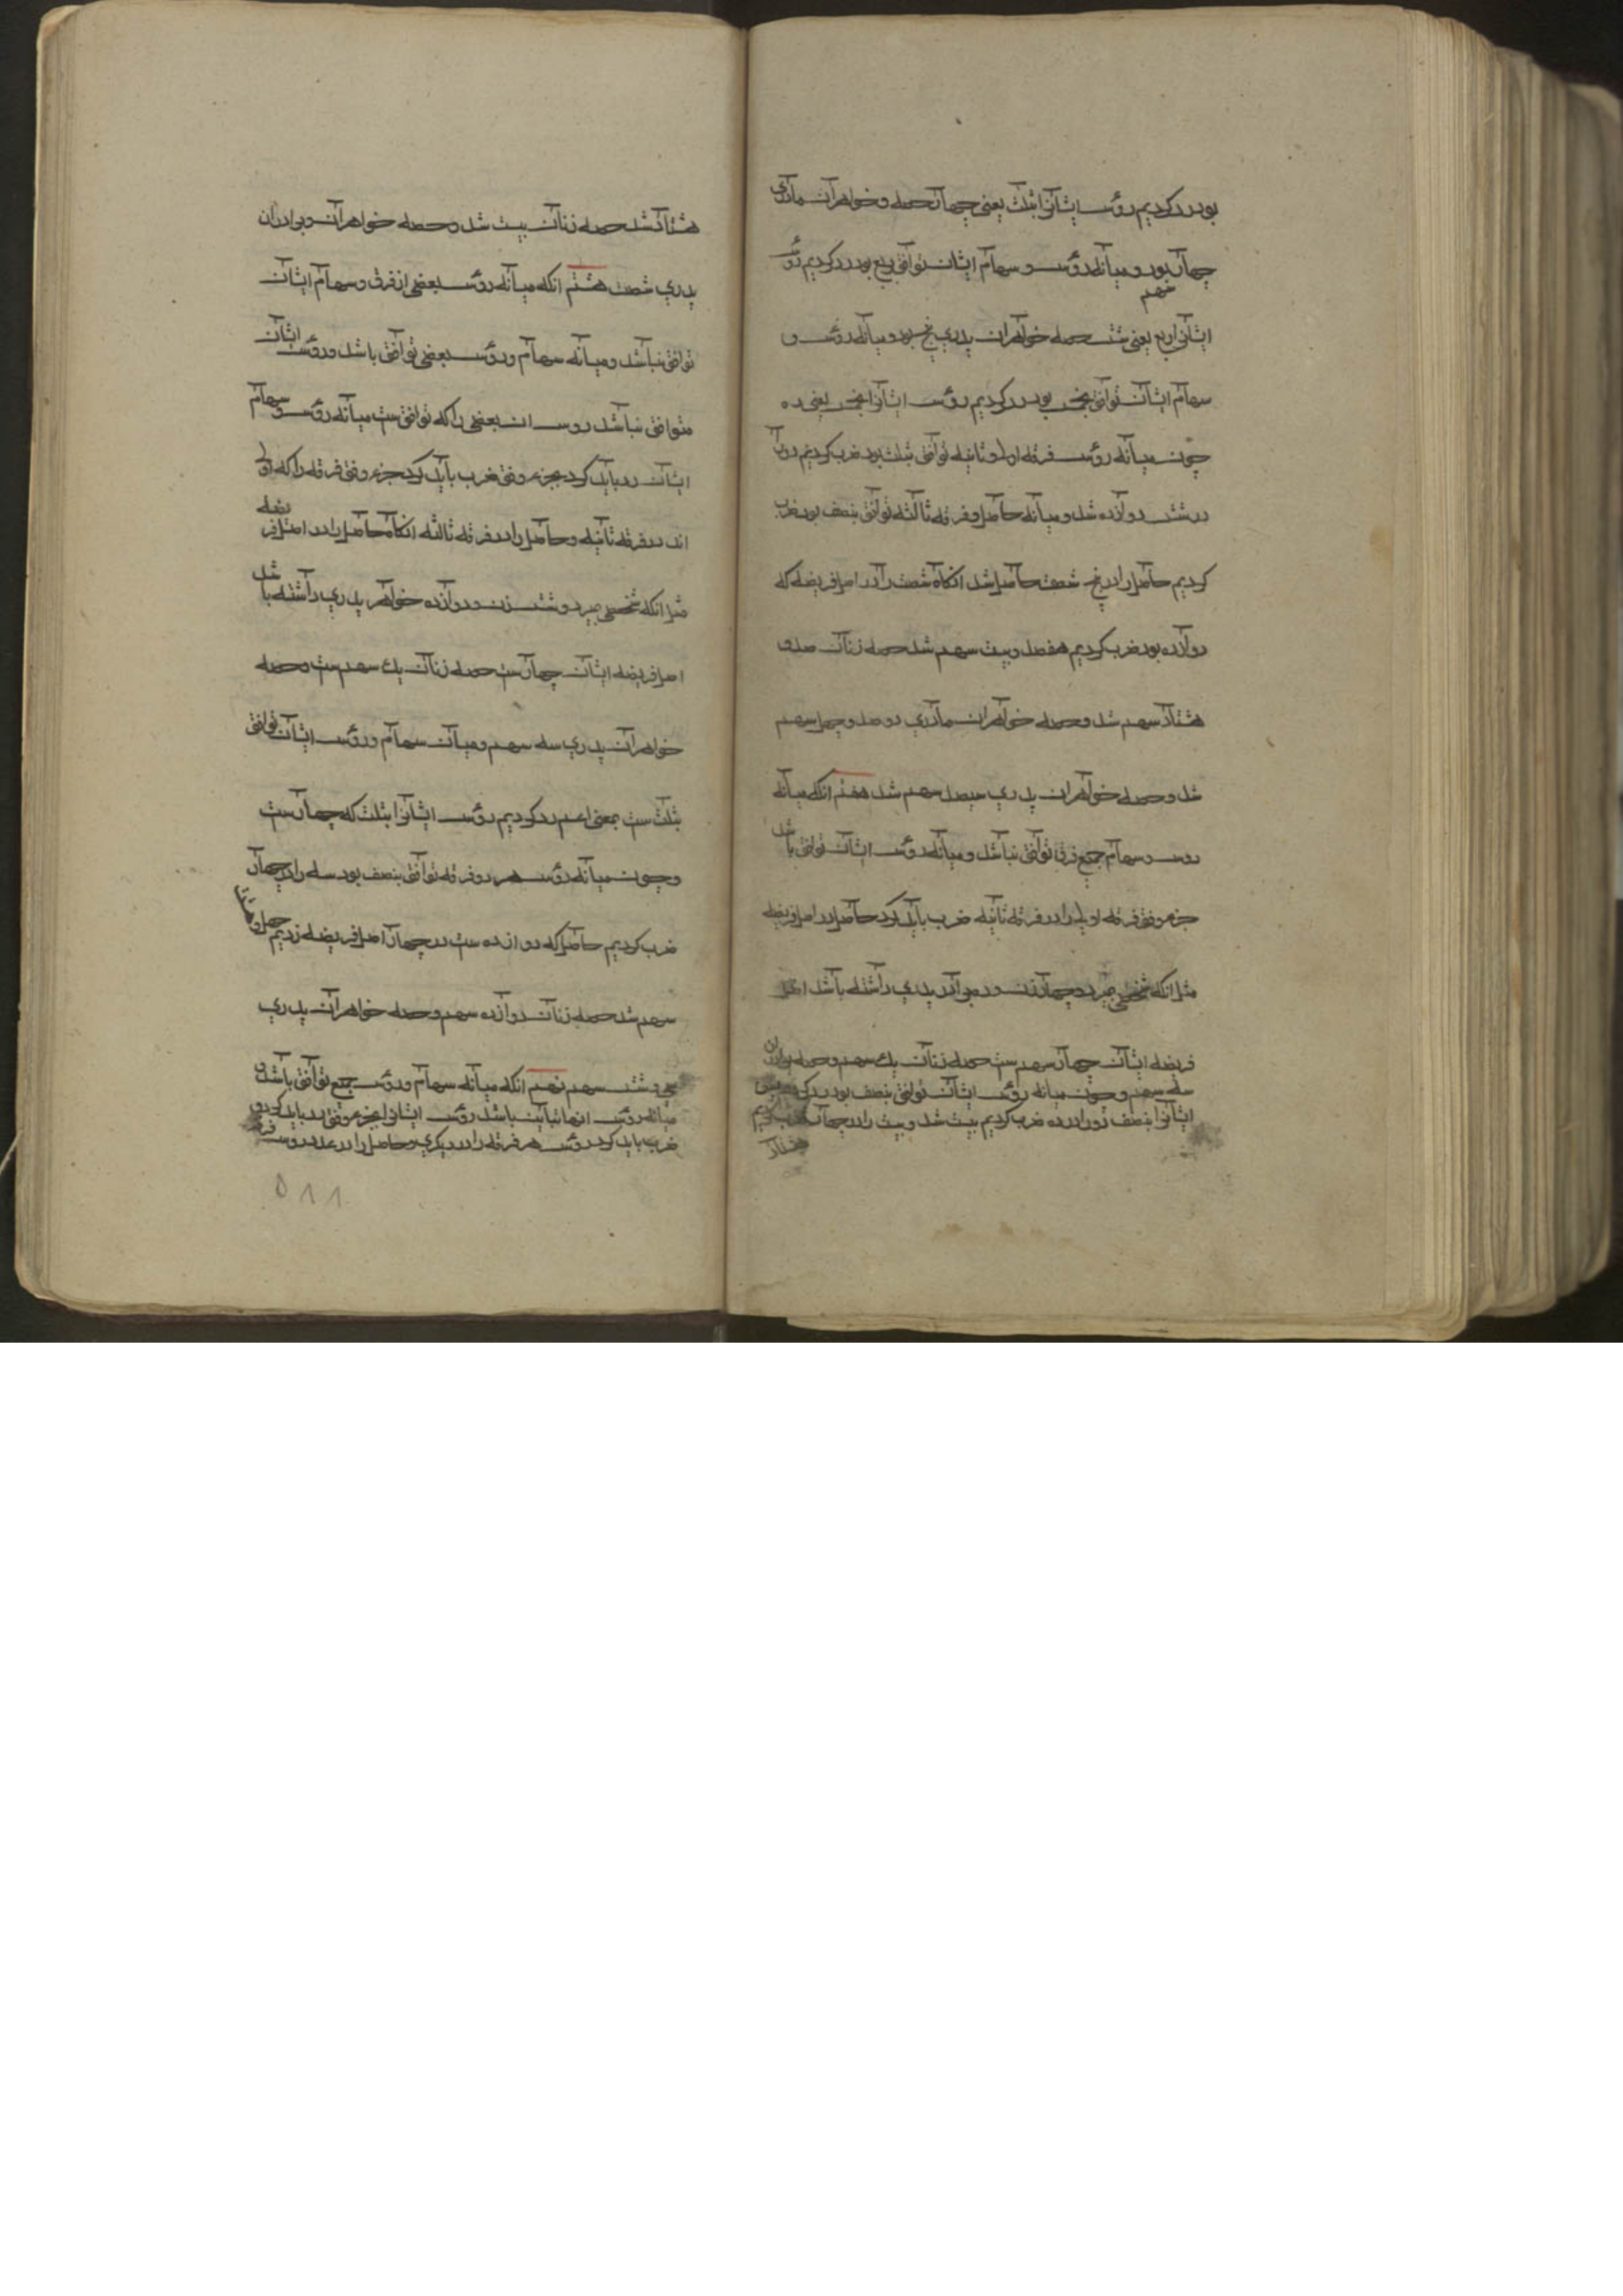 بود رد کردیم رؤس ایشانرا بثلث یعنی چهار حصه و خواهران مادری
چهار بود و میانه رؤس و سهام ایشان توافق بربع بود رد کردیم رؤس
سهم
ایشانرا بربع یعنی شش حصه خواهران پدری پنج بود و میانه رؤس و
سهام ایشان توافق بخمس بود رد کردیم رؤس ایشانرا بخمس یعنی ده
چون میانه رؤس فرقه اولی و ثانیه توافق بثلث بود ضرب کردیم دورا
در شش دوازده شد و میانه حاصل و فرقه ثالثه توافق بنصف بود ضرب
کردیم حاصل را در پنج شصت حاصل شد انگاه شصت را در اصل فریضه که
دوازده بود ضرب کردیم هفصد و بیست سهم شد حصه زنان صد و
هشتاد سهم شد و حصه خواهران مادری دوصد و چهل سهم
شد و حصه خواهران پدری سیصد سهم شد هفتم انکه میانه
روس و سهام جمیع فرق توافق نباشد و میانه رؤس ایشان توافق باشد
جزء وفق فرقه اولی را در فرقه ثانیه ضرب باید کرد حاصل در اصل فریضه
مثل انکه شخصی میرد و چهار زن و ده برادر پدری داشته باشد اصل
فریضه ایشان چهار سهم ست حصه زنان یک سهم و حصه برادران
سه سهم و چون میانه رؤس ایشان توافق بنصف بود رد کردیم
ایشانرا بنصف دورا در ده ضرب کردیم بیست شد و بیست را در چهار ضرب کردیم
هشتاد
هشتاد شد حصه زنان بیست شد و حصه خواهران و برادران
پدری شصت هشتم انکه میانه رؤس بعضی از فرق و سهام ایشان
توافق نباشد و میانه سهام و رؤس بعضی توافق باشد و رؤس ایشان
متوافق نباشد روس ان بعضی را که توافق ست میانه رؤس و سهام
ایشان رد باید کرد بجزء وفق ضرب باید کرد جزء وفق فرقه را که اولی
اند در فرقه ثانیه و حاصل را در فرقه ثالثه انگاه حاصل را در اصل فریضه
مثل انکه شخصی میرد و شش زن و دوازده خواهر پدری داشته باشد
اصل فریضه ایشان چهار ست حصه زنان یک سهم ست و حصه
خواهران پدری سه سهم و میان سهام و رؤس ایشان توافق
بثلث ست بمعنی اعم رد کردیم رؤس ایشانرا بثلث که چهار ست
و چون میانه رؤس هر دو فرقه توافق بنصف بود سه را در چهار
ضرب کردیم حاصل که دوازده ست در چهار اصل فریضه زدیم چهل و هشت
سهم شد حصه زنان دوازده سهم و حصه خواهران پدری
سی و شش سهم نهم انکه میانه سهام و رؤس جمیع توافق باشد و
میانه رؤس انها تباین باشد رؤس ایشانرا بجزء وفق رد باید کرد و
ضرب باید کرد رؤس هر فرقه را در دیگری و حاصل را در عدد روس فرقه
۵۱۱